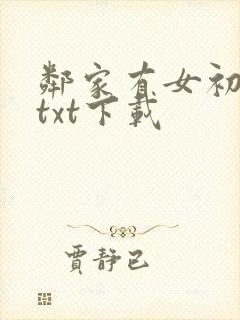 鄰家有女初
txt下載
賈靜已